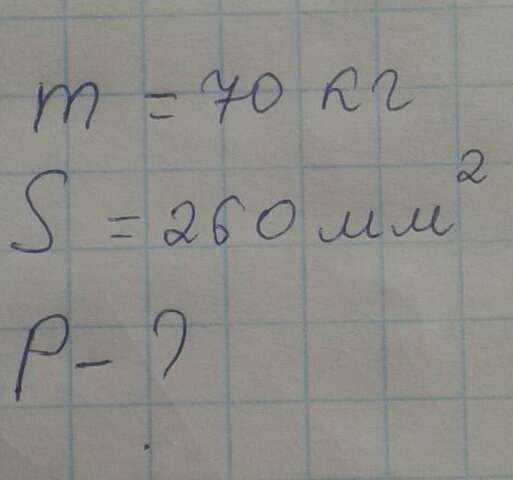 m = 70 кг
S = 260 мм²
P - ?